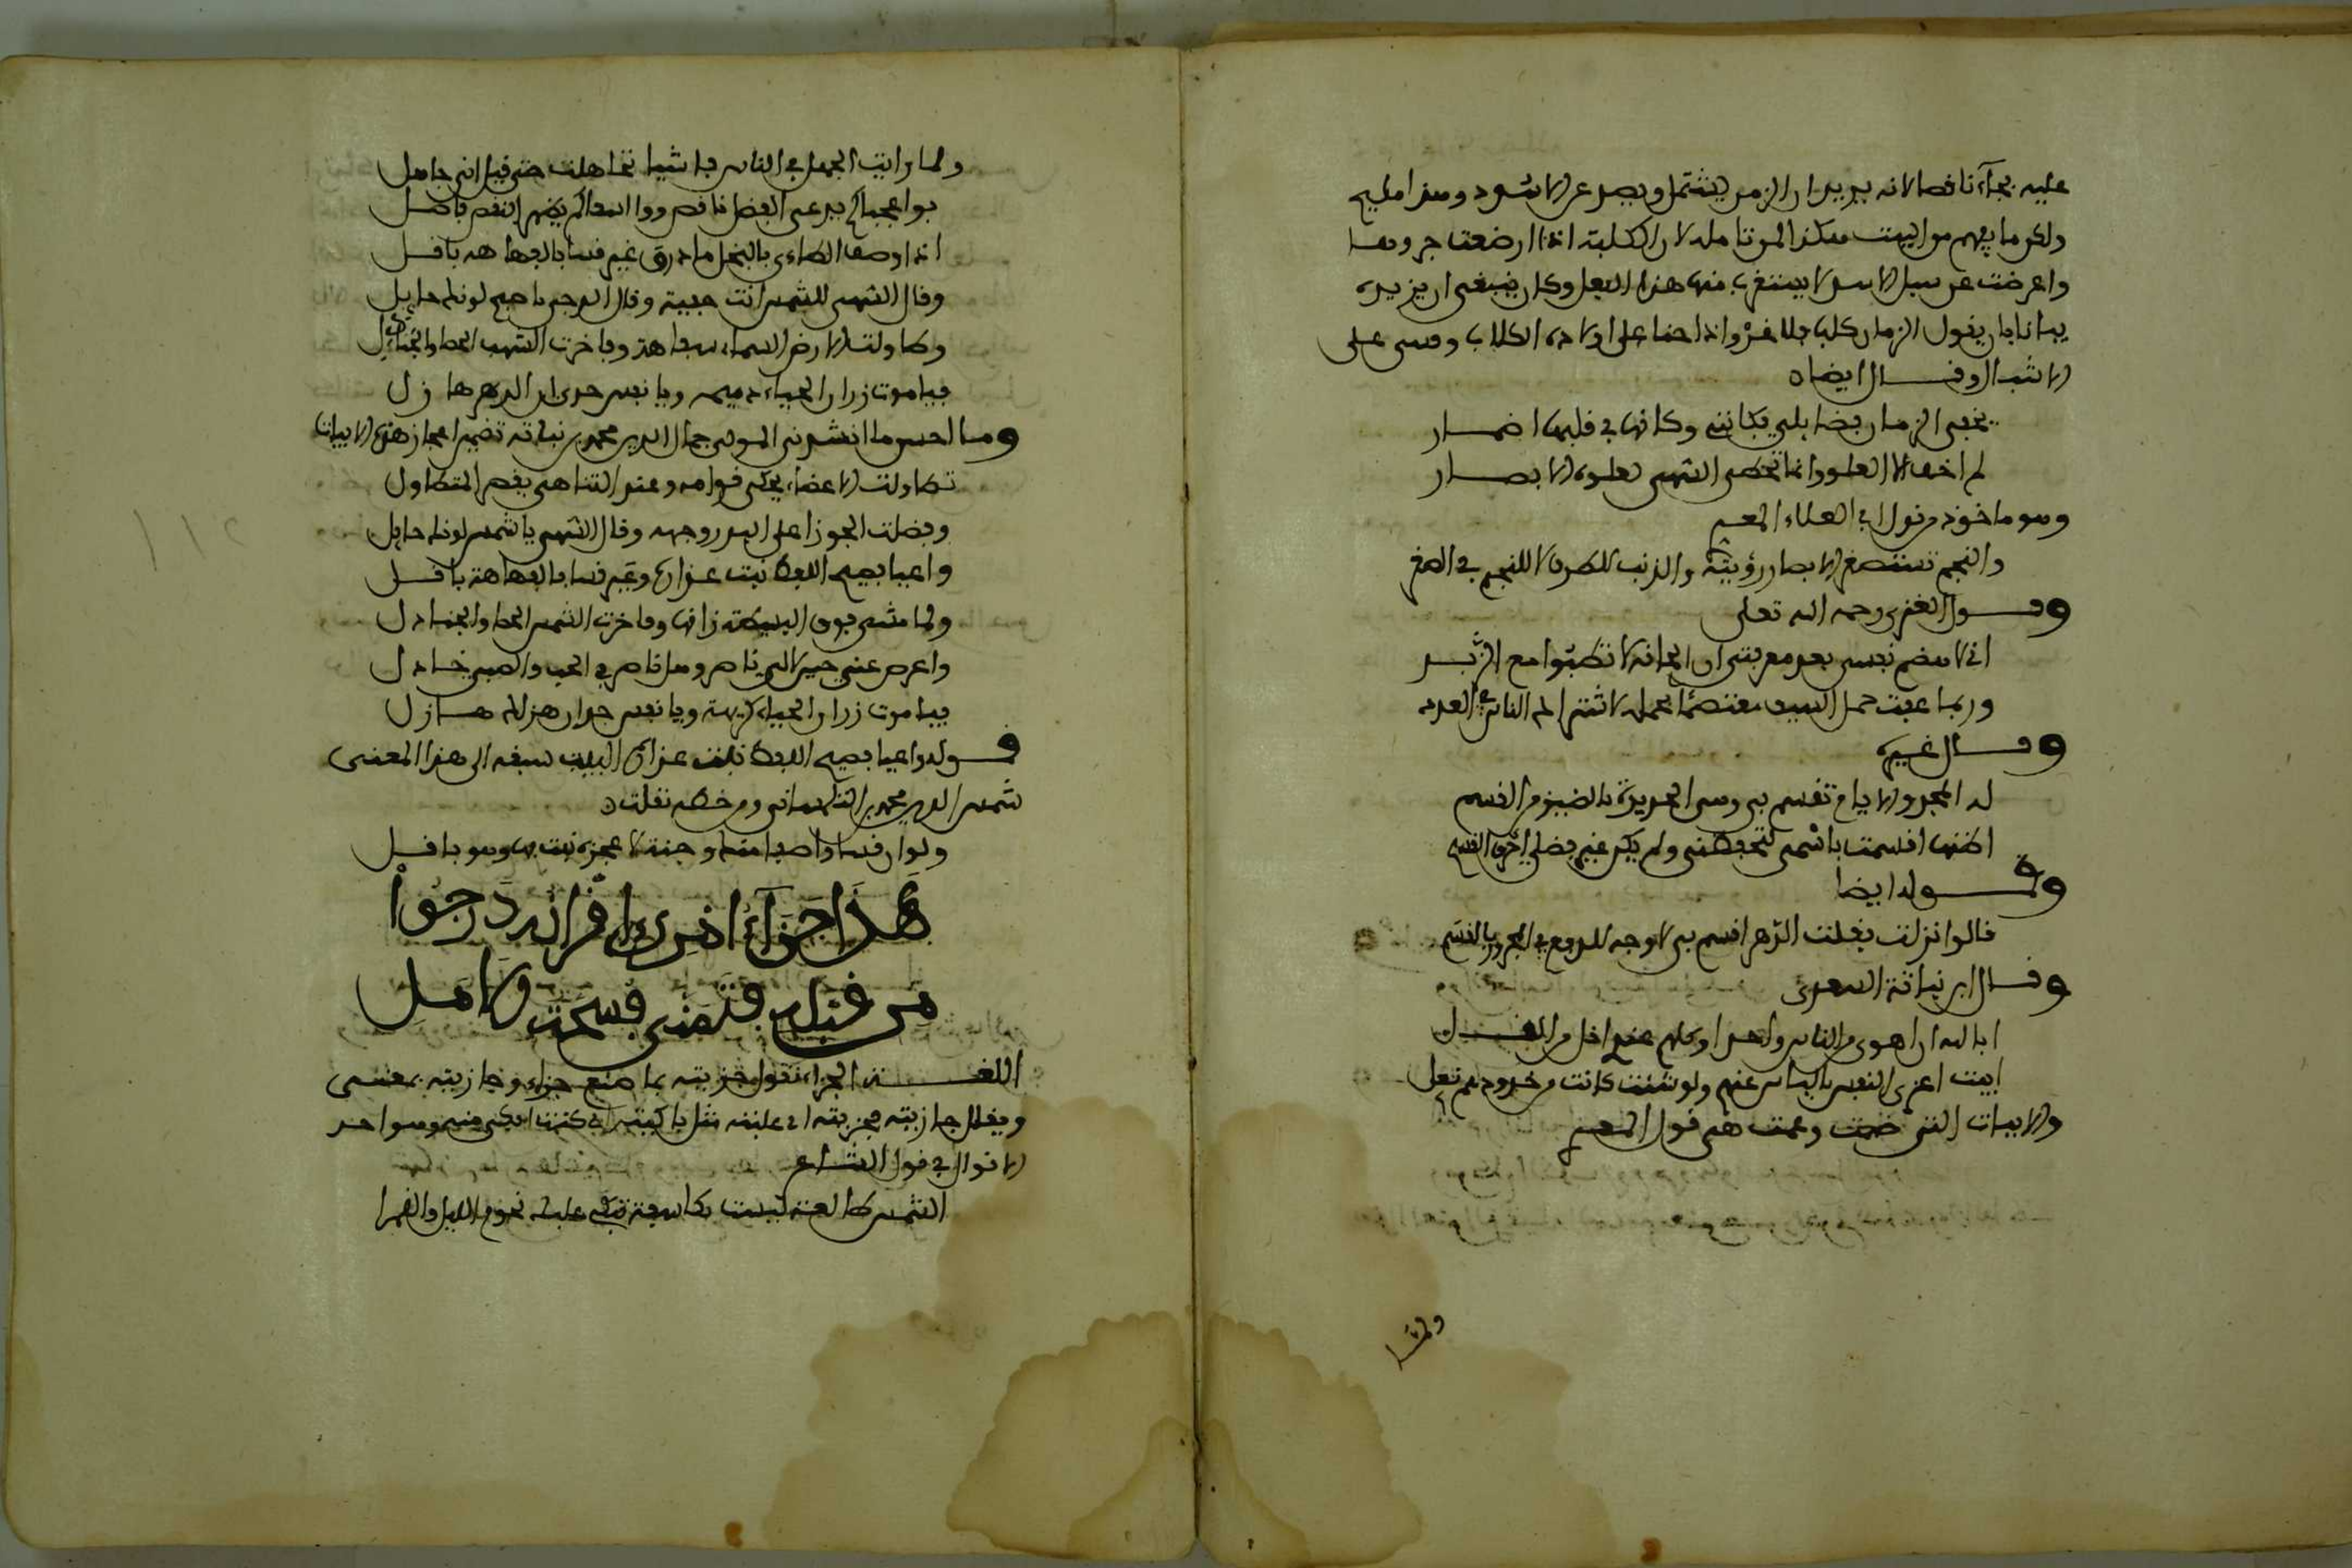 عليه بجاء ناقصا لانه يريد ان الزمن يشتمل ويصد عن الاسود وهذا مليح
ولكن ما يفهم من البيت هكذا المن تامله لان الكلبة اذا ارضعت جروها
واعرضت عن سبل الاسد لا يستغرب منها هذا الفعل وكان ينبغي ان يزيده
بيانا بان يقول الزمان كلب فلا غرو اذا حنا على اولاده الكلاب وقسى على
الاشبال وقال ايضا
يخفي الزمان فضايلي فكانني وكانها في قلبها اضمار
لم اخف الا للعلو وانما تخطي السهى لعلوه الابصار
وهو ماخوذ من قول ابي العلاء المعري
والنجم تستصغر الابصار رؤيته والذنب للطرف لا للنجم في الصغر
وقول الغزي رحمه الله تعالى
اني لا هضم نفسي بعد معرفتي ان الجلالة لا تطفوا مع الزبد
وربما عبت حمل السيف معتصما بحمله لاشتراك الناس في العدد
وقال غيره
له المجد والايام تقسم بي وهي الجديرة بالضيزى من القسم
اظنها اقسمت باسمي لتحفظني ولم يكن غير فضلي احرف القسم
وقوله ايضا
قالوا نزلت فقلت الدهر اقسم بي لا وجه للرفع في المجرور بالقسم
وقال ابن نباتة السعدي
ابا لله ان اهوى من الناس واحدا وكلهم عندي اخل من البخل
ابيت اعزي النفس بالياس عنهم ولو شئت كانت من خدودهم نعلي
والابيات التي خصت وعمت هي قول المعري
ولما
ولما رايت الجهل في الناس فاشيا تجاهلت حتى قيل اني جاهل
فوا عجبا كم يدعي الفضل ناقص ووا اسفا كم يظهر النقص فاضل
اذا وصف الطاءي بالبخل مادر وعير قسا بالفهاهة باقل
وقال السهى للشمس انت خفية وقال الدجى يا صبح لونك حايل
وطاولت الارض السماء سفاهة وفاخرت الشهب الحصا والجنادل
فيا موت زر ان الحياء دميمه ويا نفس جدي ان الدهر هازل
وما احسن ما انشدني المولى جمال الدين محمد بن نباتة تضمين اعجاز هذه الابيات
تطاولت الاعضاء يحكي قوامه وعند التناهي يقصر المتطاول
وفضلت الجوزا على البدر وجهه وقال السهى يا شمس لونك حايل
واعيا فصيح اللفظ نبت عذاره وعير قسا بالفهاهة باقل
ولما مشى فوق البسيطة زانها وفاخرت الشمس الحصا والجنادل
واعرض عني حين لا لي ناصر وهل ناصر في الحب والصبر خاذل
فيا موت زر ان الحياة كريهة ويا نفس جدي ان هزلك هازل
قوله واعيا فصيح اللفظ نبت عذاره البيت سبقه الى هذا المعنى
شمس الدين محمد بن التلمساني ومن خطه نقلت
ولو ان قسا واصف منك وجنة لاعجزه نبت بها وهو باقل
هَذَا جَزَآءُ امْرِئٍ اَقْرَانُهُ دَرَجُوا
مِن قَبْلِهِ فَتَمَنَّى فُسْحَةَ الاَجَلِ
اللغة الجزاء تقول جزيته بما صنع جزاء وجازيته بمعنى
ويقال جازيته فجزيته اي غلبته مثل باكيته اي كنت ابكى منه وهو احد
الاقوال في قول الشاعر
الشمس طالعة ليست بكاسفة تبكي عليك نجوم الليل والقمرا